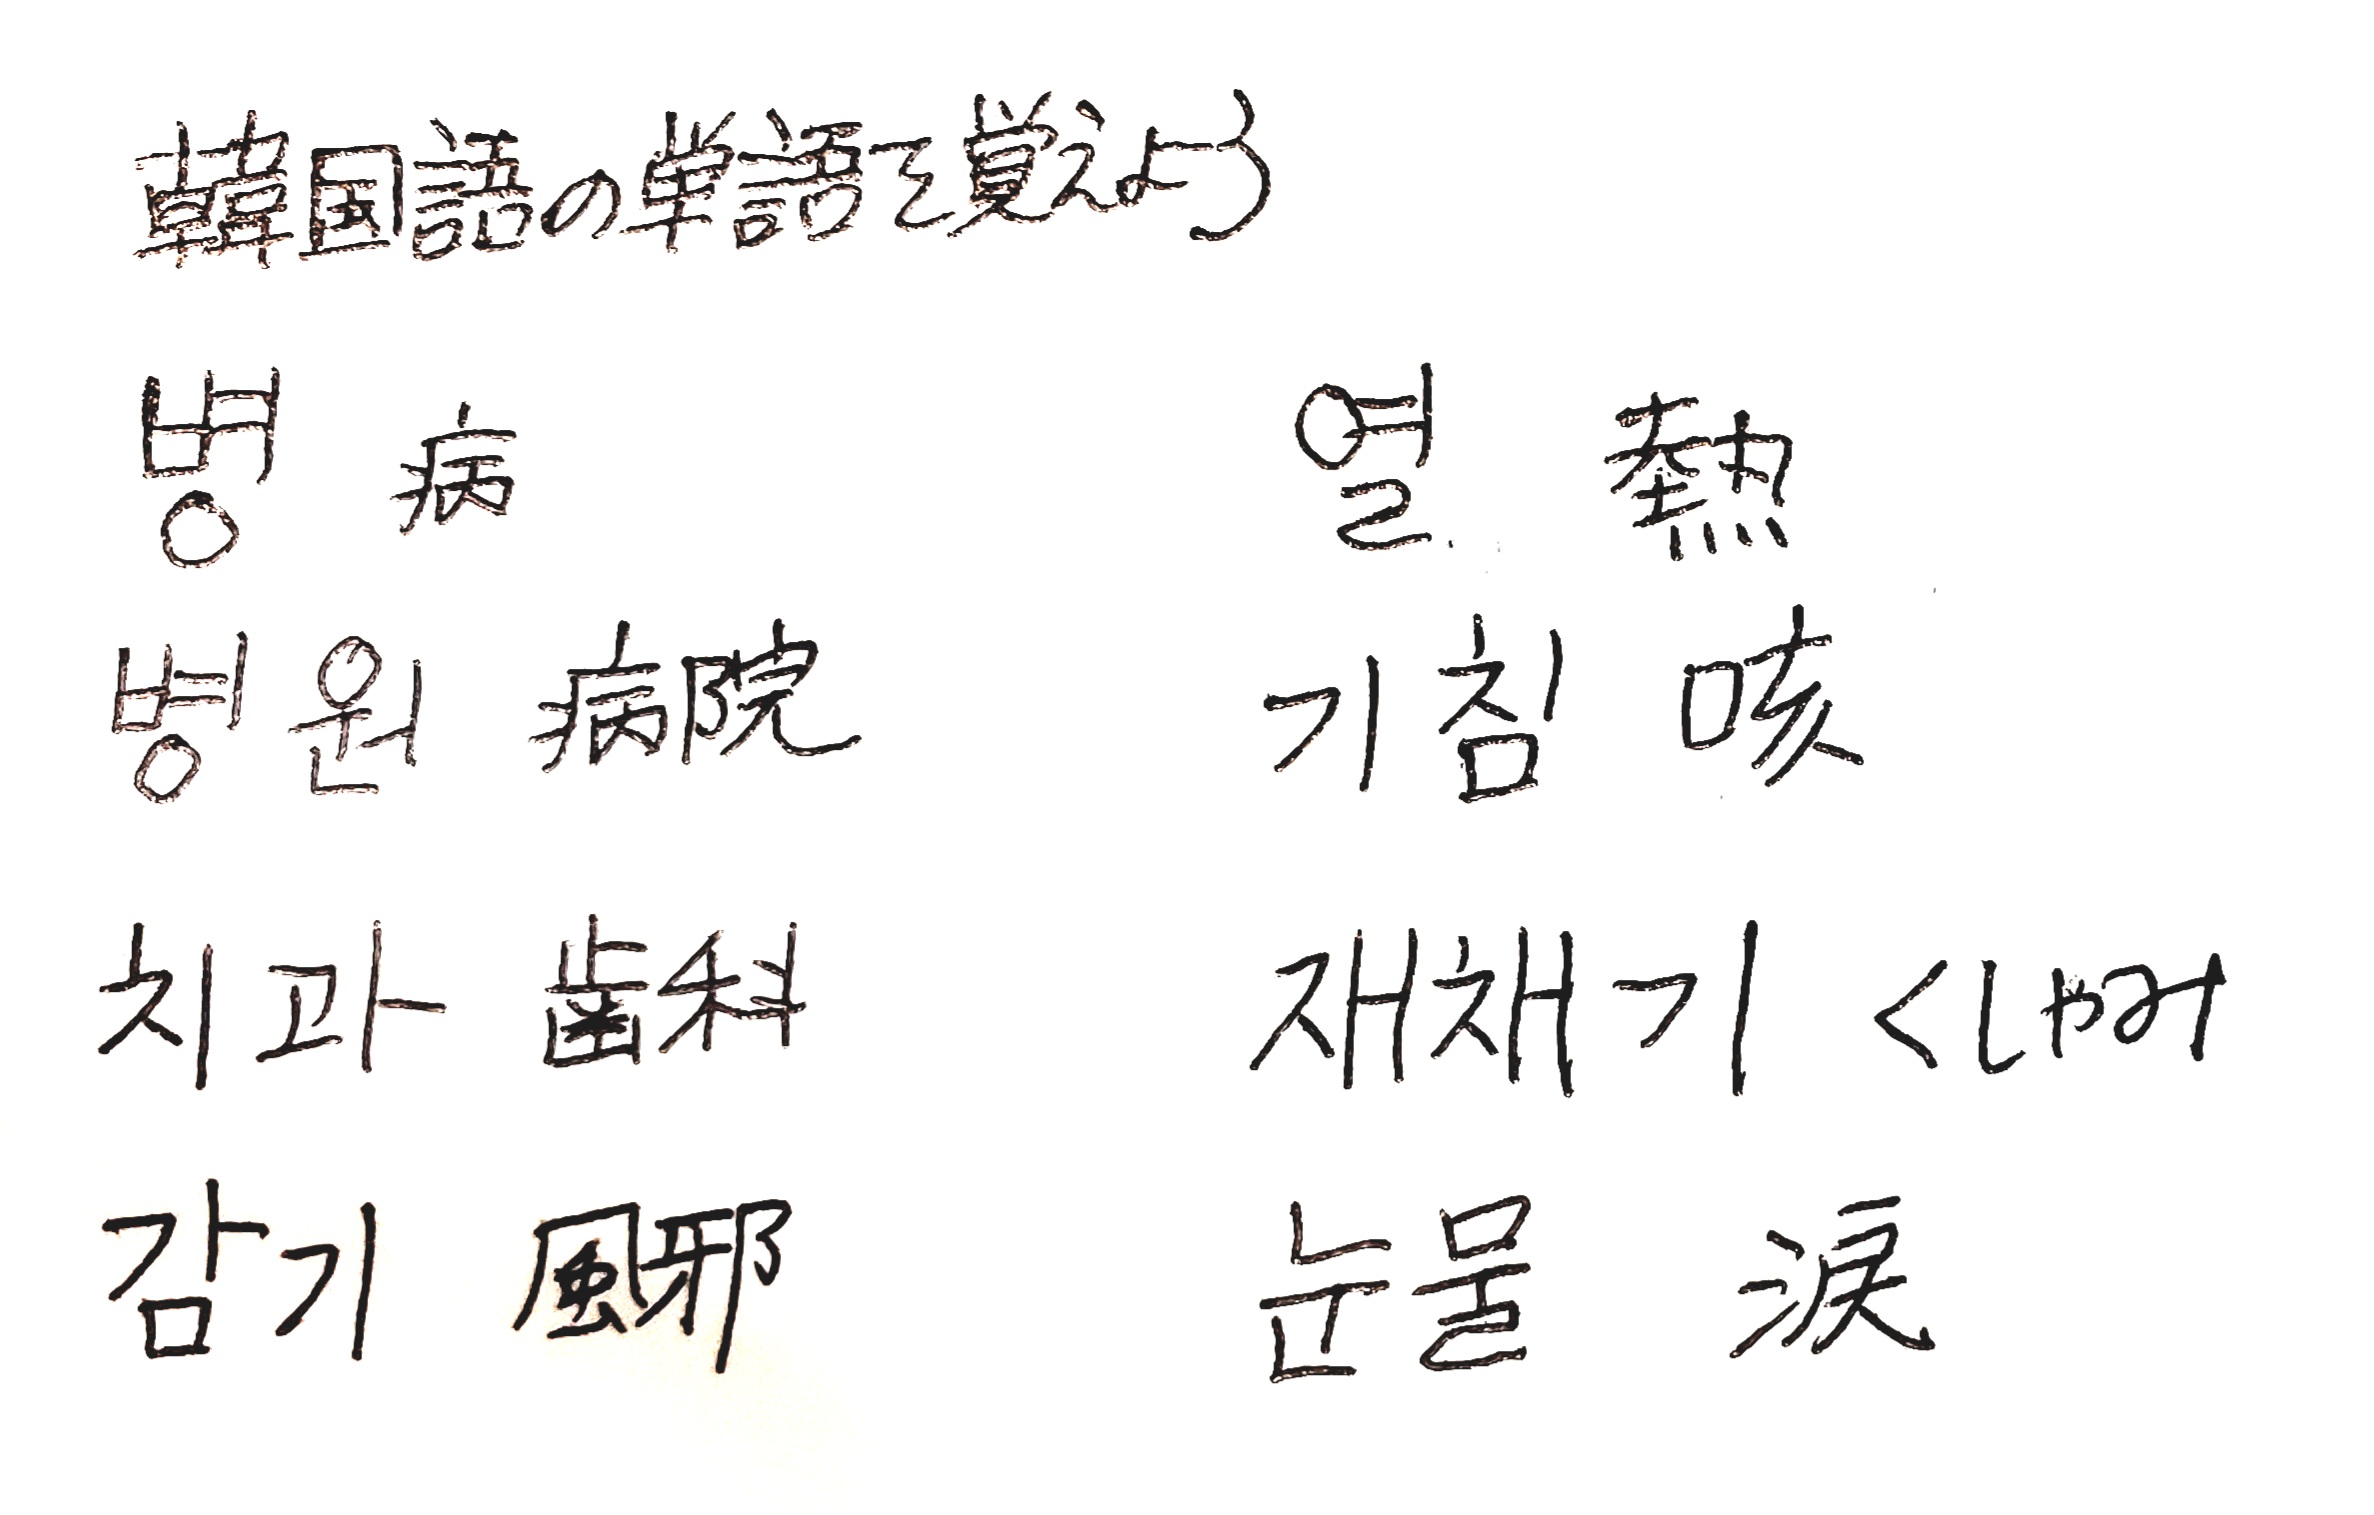 韓国語の単語を覚えよう
병 病
병원 病院
치과 歯科
감기 風邪
열 熱
기침 咳
재채기 くしゃみ
눈물 涙